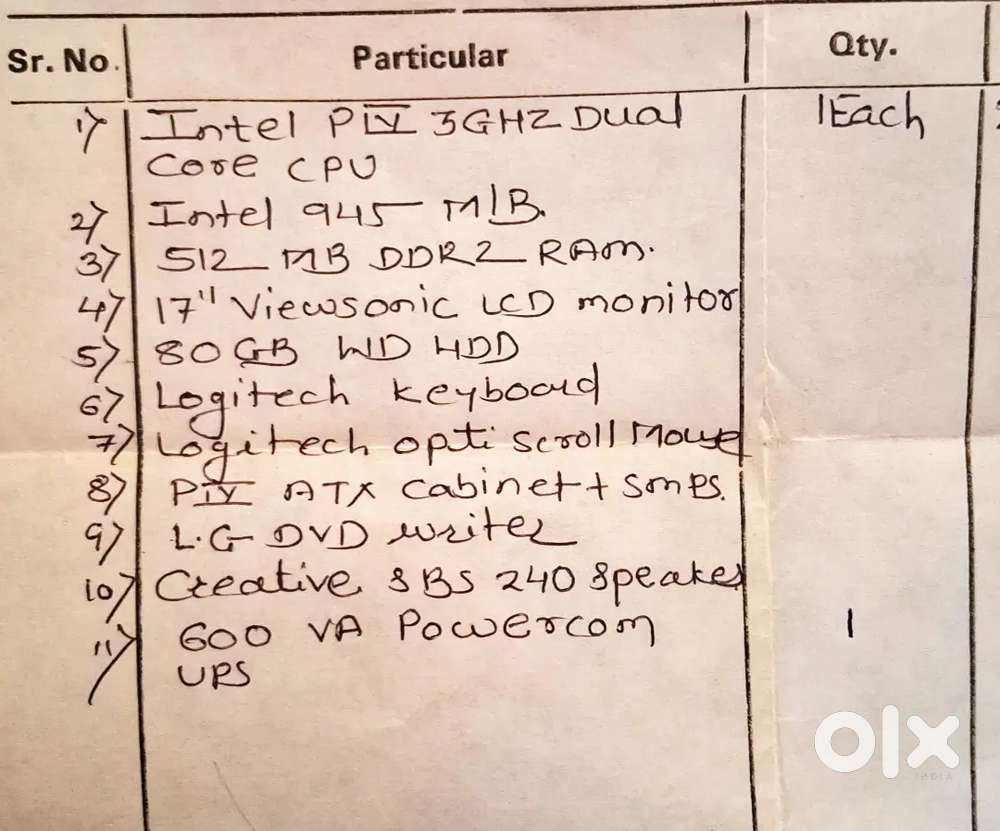 Sr. No. Particular Qty.
1) Intel PIV 3GHZ Dual 1Each
Core CPU
2) Intel 945 M/B.
3) 512 MB DDR2 RAM.
4) 17" Viewsonic LCD monitor
5) 80 GB WD HDD
6) Logitech Keyboard
7) Logitech opti scroll Mouse
8) PIV ATX Cabinet + SMPS.
9) L.G DVD writer
10) Creative SBS 240 Speaker
11) 600 VA Powercom 1
UPS
olx
INDIA